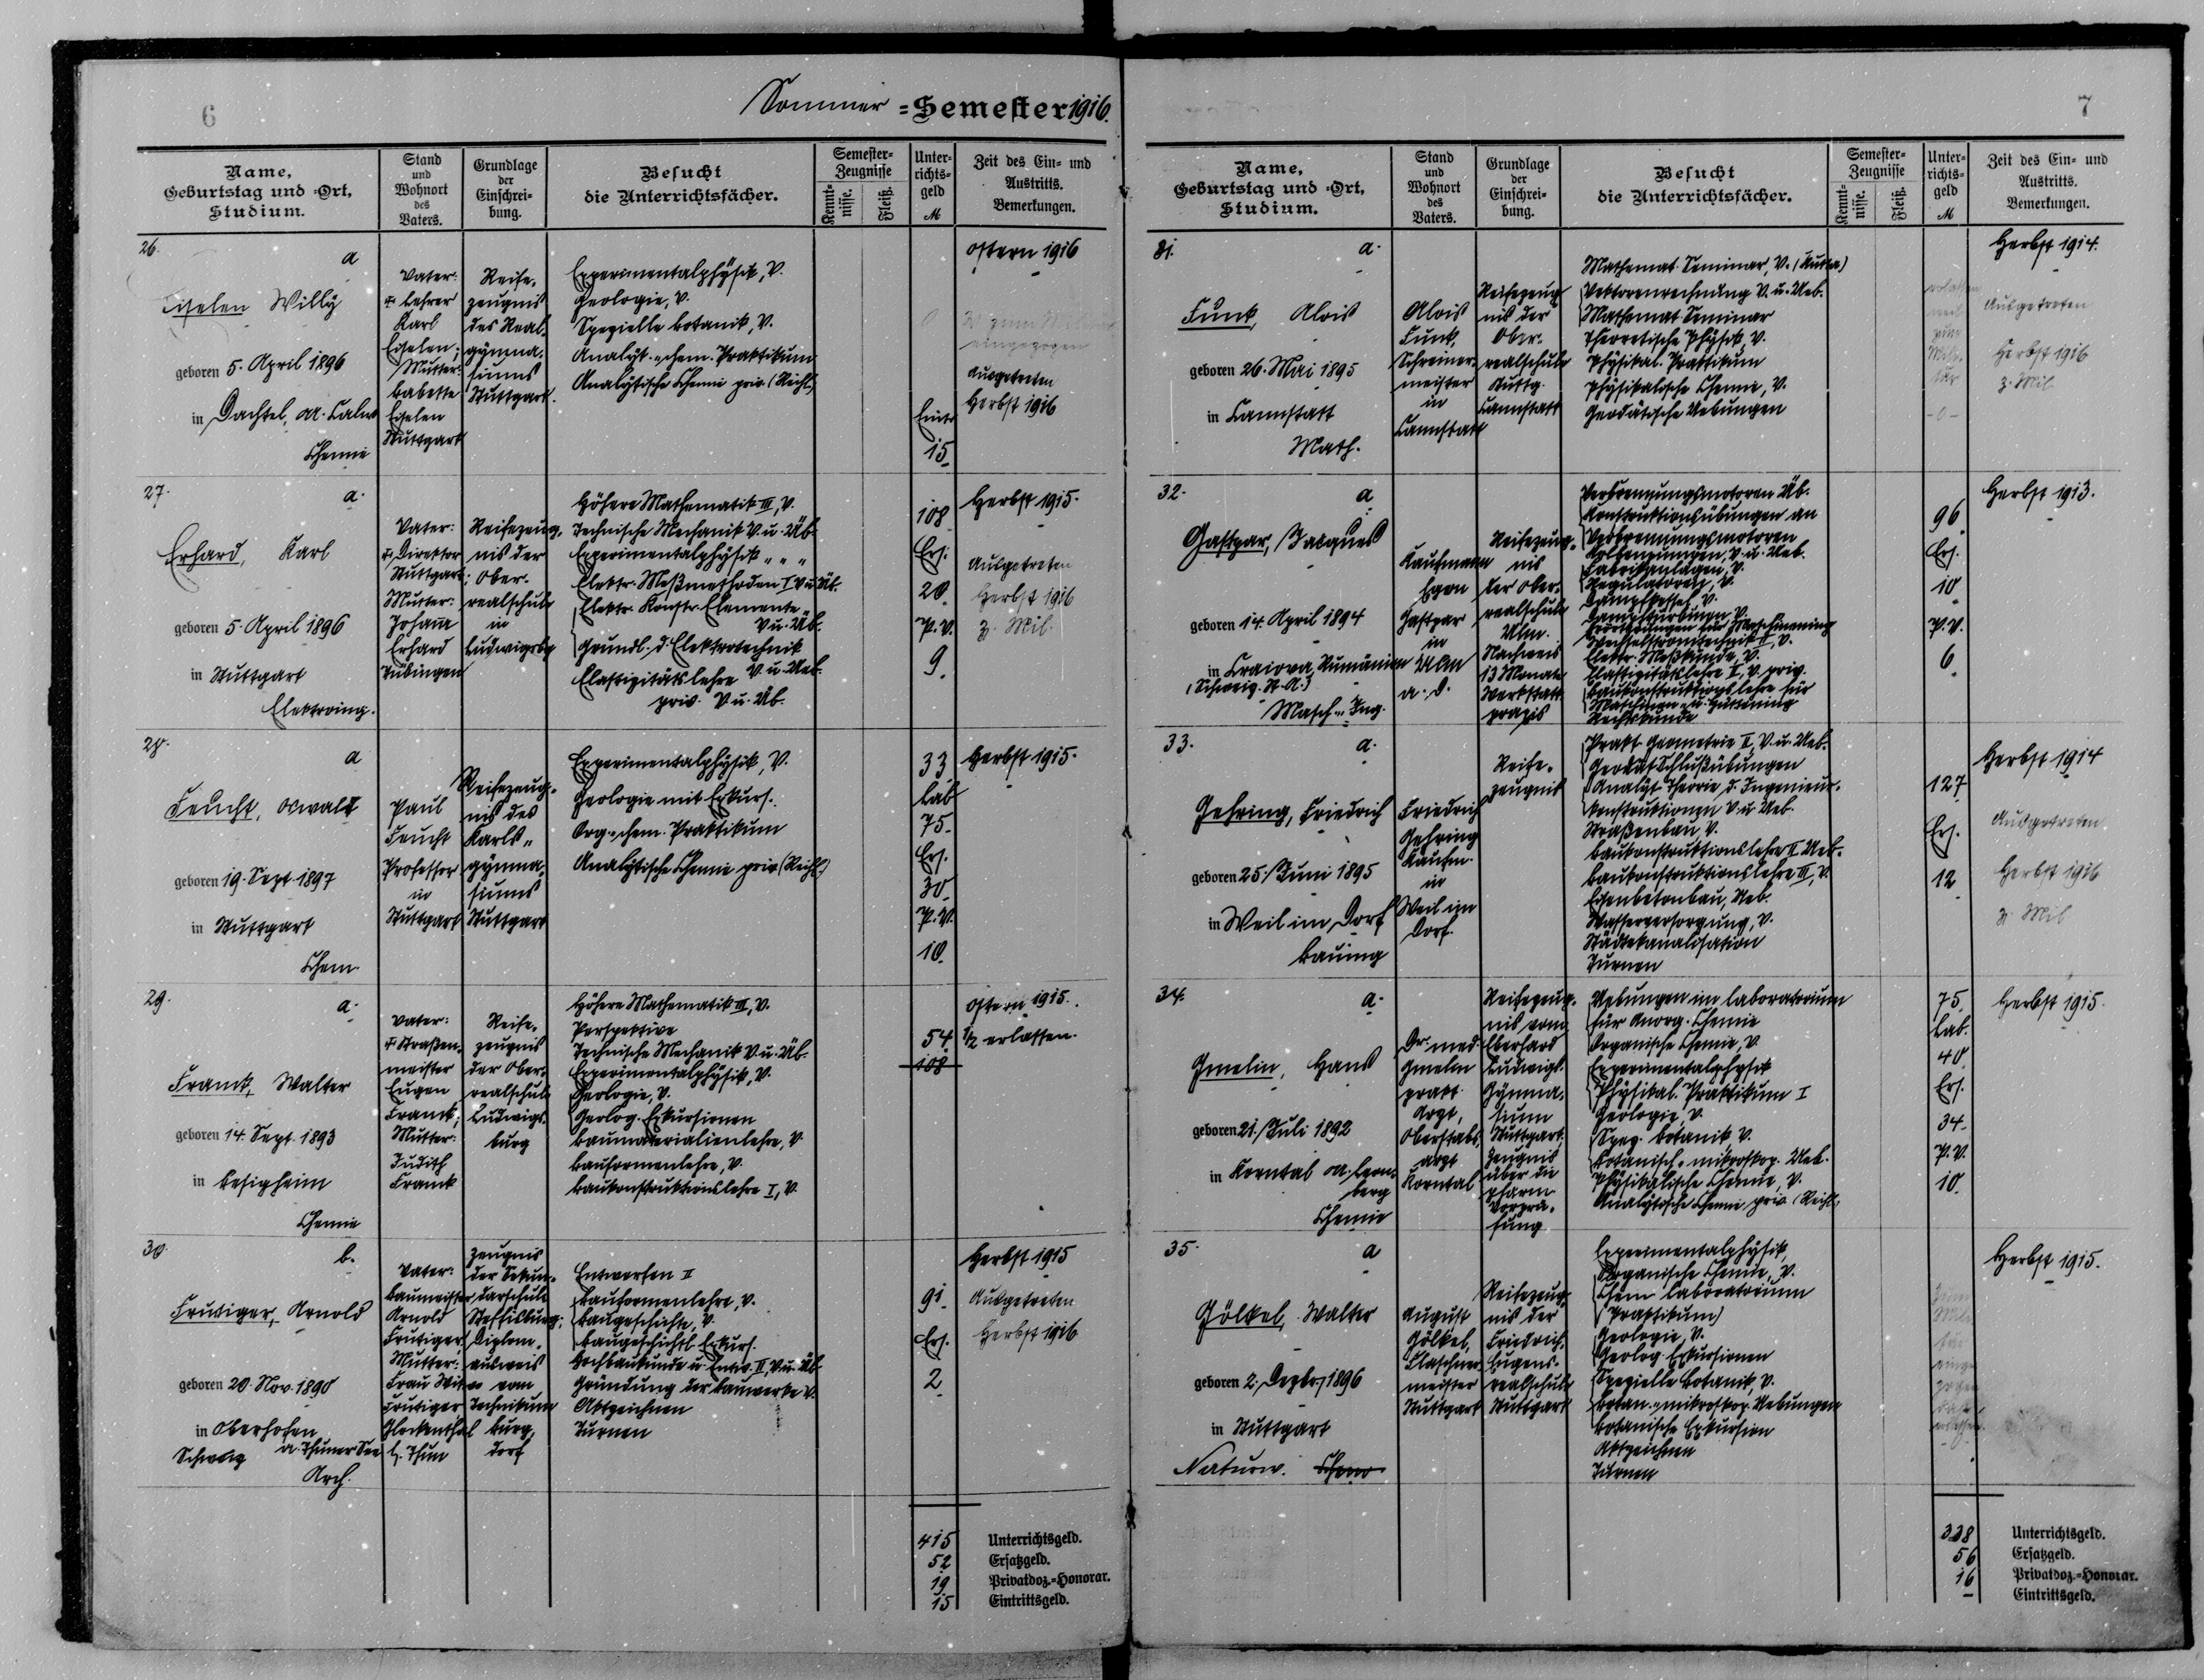 6
Sommer =Semester 1916.
Name,
Geburtstag und =Ort,
Studium.
Stand
und
Wohnort
des
Vaters.
Grundlage
der
Einschrei-
bung.
Besucht
die Unterrichtsfächer.
Semester-
Zeugnisse
Kennt-
nisse.
Fleiß.
Unter-
richts-
geld
M
Zeit des Ein- und
Austritts.
Bemerkungen.
26.
a
Eiselen Willy
geboren 5. April 1896
in Dachtel, OA. Calw
Chemie
Vater:
† Lehrer
Karl
Eiselen;
Mutter:
Babette
Eiselen
Stuttgart
Reife-
zeugnis
des Real-
gymna-
siums
Stuttgart.
Experimentalphysik, V.
Geologie, V.
Spezielle Botanik, V.
Analyt.-chem. Praktikum
Analytische Chemie priv. (Reihl.)
0
Eintr
15
Ostern 1916
eingezogen
Ausgetreten
Herbst 1916
27.
a.
Erhard, Karl
geboren 5. April 1896
in Stuttgart
Elektroing.
Vater:
† Direktor
Stuttgart;
Mutter:
Johana
Erhard
Tübingen
Reifezeug-
nis der
Ober-
realschule
in
Ludwigsbg
Höhere Mathematik III, V.
Technische Mechanik V. u. Üb.
Experimentalphysik " " "
Elektr. Meßmethoden I V u. Üb.
Elektr. Konstr. Elemente
V u. Üb.
Grundl. d. Elektrotechnik
V. u. Ueb.
Elastizitätslehre
priv. V u. Üb.
108
Ers.
20
P. V.
9.
Herbst 1915.
Ausgetreten
Herbst 1916
z. Mil.
28.
a
Feucht, Oswalt
geboren 19. Sept 1897
in Stuttgart
Chem.
Paul
Feucht
Professor
in
Stuttgart
Reifezeug-
nis des
Karls-
gymna-
siums
Stuttgart
Experimentalphysik, V.
Geologie mit Exkurs.
Org.-chem. Praktikum
Analytische Chemie priv. (Reihl.)
33
Lab
75.
Ers.
30.
P. V.
10.
Herbst 1915.
29.
a.
Franck, Walter
geboren 14. Sept. 1893
in Besigheim
Chemie
Vater:
† Straßen-
meister
Eugen
Franck;
Mutter:
Judith
Franck
Reife-
zeugnis
der Ober-
realschule
Ludwigs-
burg
Höhere Mathematik III, V.
Perspektive
Technische Mechanik V. u. Üb.
Experimentalphysik, V.
Geologie, V.
Geolog. Exkursionen
Baumaterialienlehre, V.
Bauformenlehre, V.
Baukonstruktionslehre I, V.
54
108
Ostern 1915.
½ erlassen.
30.
b.
Frutiger, Arnold
geboren 20. Nov. 1890
in Oberhofen
Schweiz a. Thuner See
Arch.
Vater:
Baumeister
Arnold
Frutiger
Mutter:
Frau Witwe
Frutiger
Glockenthal
b. Thun
Zeugnis
der Sekun-
darschule
Steffisburg;
Diplom-
ausweis
vom
Technikum
Burg-
dorf
Entwerfen II
Bauformenlehre, V.
Baugeschichte, V.
Baugeschichtl. Exkurs.
Hochbaukunde u. Entw. II, V u. Üb.
Gründung der Bauwerke V.
Aktzeichnen
Turnen
91.
Ers.
2
Herbst 1915
Ausgetreten
Herbst 1916
415 Unterrichtsgeld.
52 Ersatzgeld.
19 Privatdoz.-Honorar.
15 Eintrittsgeld.
7
Name,
Geburtstag und =Ort,
Studium.
Stand
und
Wohnort
des
Vaters.
Grundlage
der
Einschrei-
bung.
Besucht
die Unterrichtsfächer.
Semester-
Zeugnisse
Kennt-
nisse.
Fleiß.
Unter-
richts-
geld
M
Zeit des Ein- und
Austritts.
Bemerkungen.
31.
a.
Funk, Alois
geboren 26. Mai 1895
in Cannstatt
Math.
Alois
Funk,
Schreiner-
meister
in
Cannstatt
Reifezeug
nis der
Ober-
realschule
Stuttg.
Cannstatt
Mathemat. Seminar, V. (Kutta)
Vektorenrechnung V. u. Ueb.
Mathemat. Seminar
Theoretische Physik, V.
Physikal. Praktikum
Physikalische Chemie, V.
Geodätische Uebungen
erlassen
weil
zum
Mili-
tär
-0-
Herbst 1914.
Ausgetreten
Herbst 1916
z. Mil.
32.
a
Gastpar, Jacques
geboren 14. April 1894
in Craiova, Rumänien
(Schweiz. St. A.)
Masch.-Ing.
Kaufmann
Egon
Gastpar
in
Ulm
a. D.
Reifezeug-
nis
der Ober-
realschule
Ulm.
Nachweis
13 Monate
Werkstatt
praxis
Verbrennungsmotoren Üb.
Konstruktionsübungen an
Verbrennungsmotoren
V. u. Ueb.
Fabrikanlagen, V.
Regulatoren, V.
Dampfkessel V.
Dampfturbinen V.
Wechselstromtechnik II, V.
Elektr. Meßkunde, V.
Elastizitätslehre II, V. priv.
Baukonstruktionslehre für
Maschinen- u.
Rechtskunde
96
Ers.
10
P. V.
6.
Herbst 1913.
33.
a.
Gehring, Friedrich
geboren 25. Juni 1895
in Weil im Dorf
Bauing
Friedrich
Gehring
Kaufm.
in
Weil im
Dorf.
Reife-
zeugnis
Prakt. Geometrie II, V. u. Ueb.
Geodät. Schlußübungen
Analyt. Theorie d. Ingenieur-
konstruktionen V u. Ueb.
Straßenbau, V.
Baukonstruktionslehre II Ueb.
Baukonstruktionslehre III, V.
Eisenbetonbau, Ueb.
Wasserversorgung, V.
Städtekanalisation
Turnen
127
Ers.
12
Herbst 1914
Ausgetreten
Herbst 1916
z. Mil
34.
a.
Gmelin, Hans
geboren 21. Juli 1892
in Korntal OA. Leon-
berg
Chemie
Dr. med.
Gmelin
prakt.
Arzt,
Oberstabs-
arzt
Korntal
Reifezeug-
nis vom
Eberhard
Ludwigs-
Gymna-
sium
Stuttgart.
Zeugnis
über die
pharm
Vorprü-
fung
Uebungen im Laboratorium
für Anorg. Chemie
Organische Chemie, V.
Experimentalphysik
Physikal. Praktikum I
Geologie, V.
Spez. Botanik V.
Botanisch-mikroskop. Ueb.
Physikalische Chemie, V.
Analytische Chemie priv. (Reihl.)
75.
Lab.
40
Ers.
34.
P. V.
10.
Herbst 1915.
35.
a
Gölkel, Walter
geboren 2. Dezbr. 1896
in Stuttgart
Naturw. Chem
August
Gölkel,
Flaschner-
meister
Stuttgart
Reifezeug-
nis der
Friedrich
Eugens-
realschule
Stuttgart
Experimentalphysik,
Organische Chemie, V.
Chem. Laboratorium
(Praktikum)
Geologie, V.
Geolog. Exkursionen
Spezielle Botanik, V.
Botan.-mikroskop. Uebungen
Botanische Exkursion
Aktzeichnen
Turnen
zum
Mili-
tär
einge-
zogen
erlassen.
Herbst 1915.
338 Unterrichtsgeld.
56 Ersatzgeld.
16 Privatdoz.-Honorar.
– Eintrittsgeld.